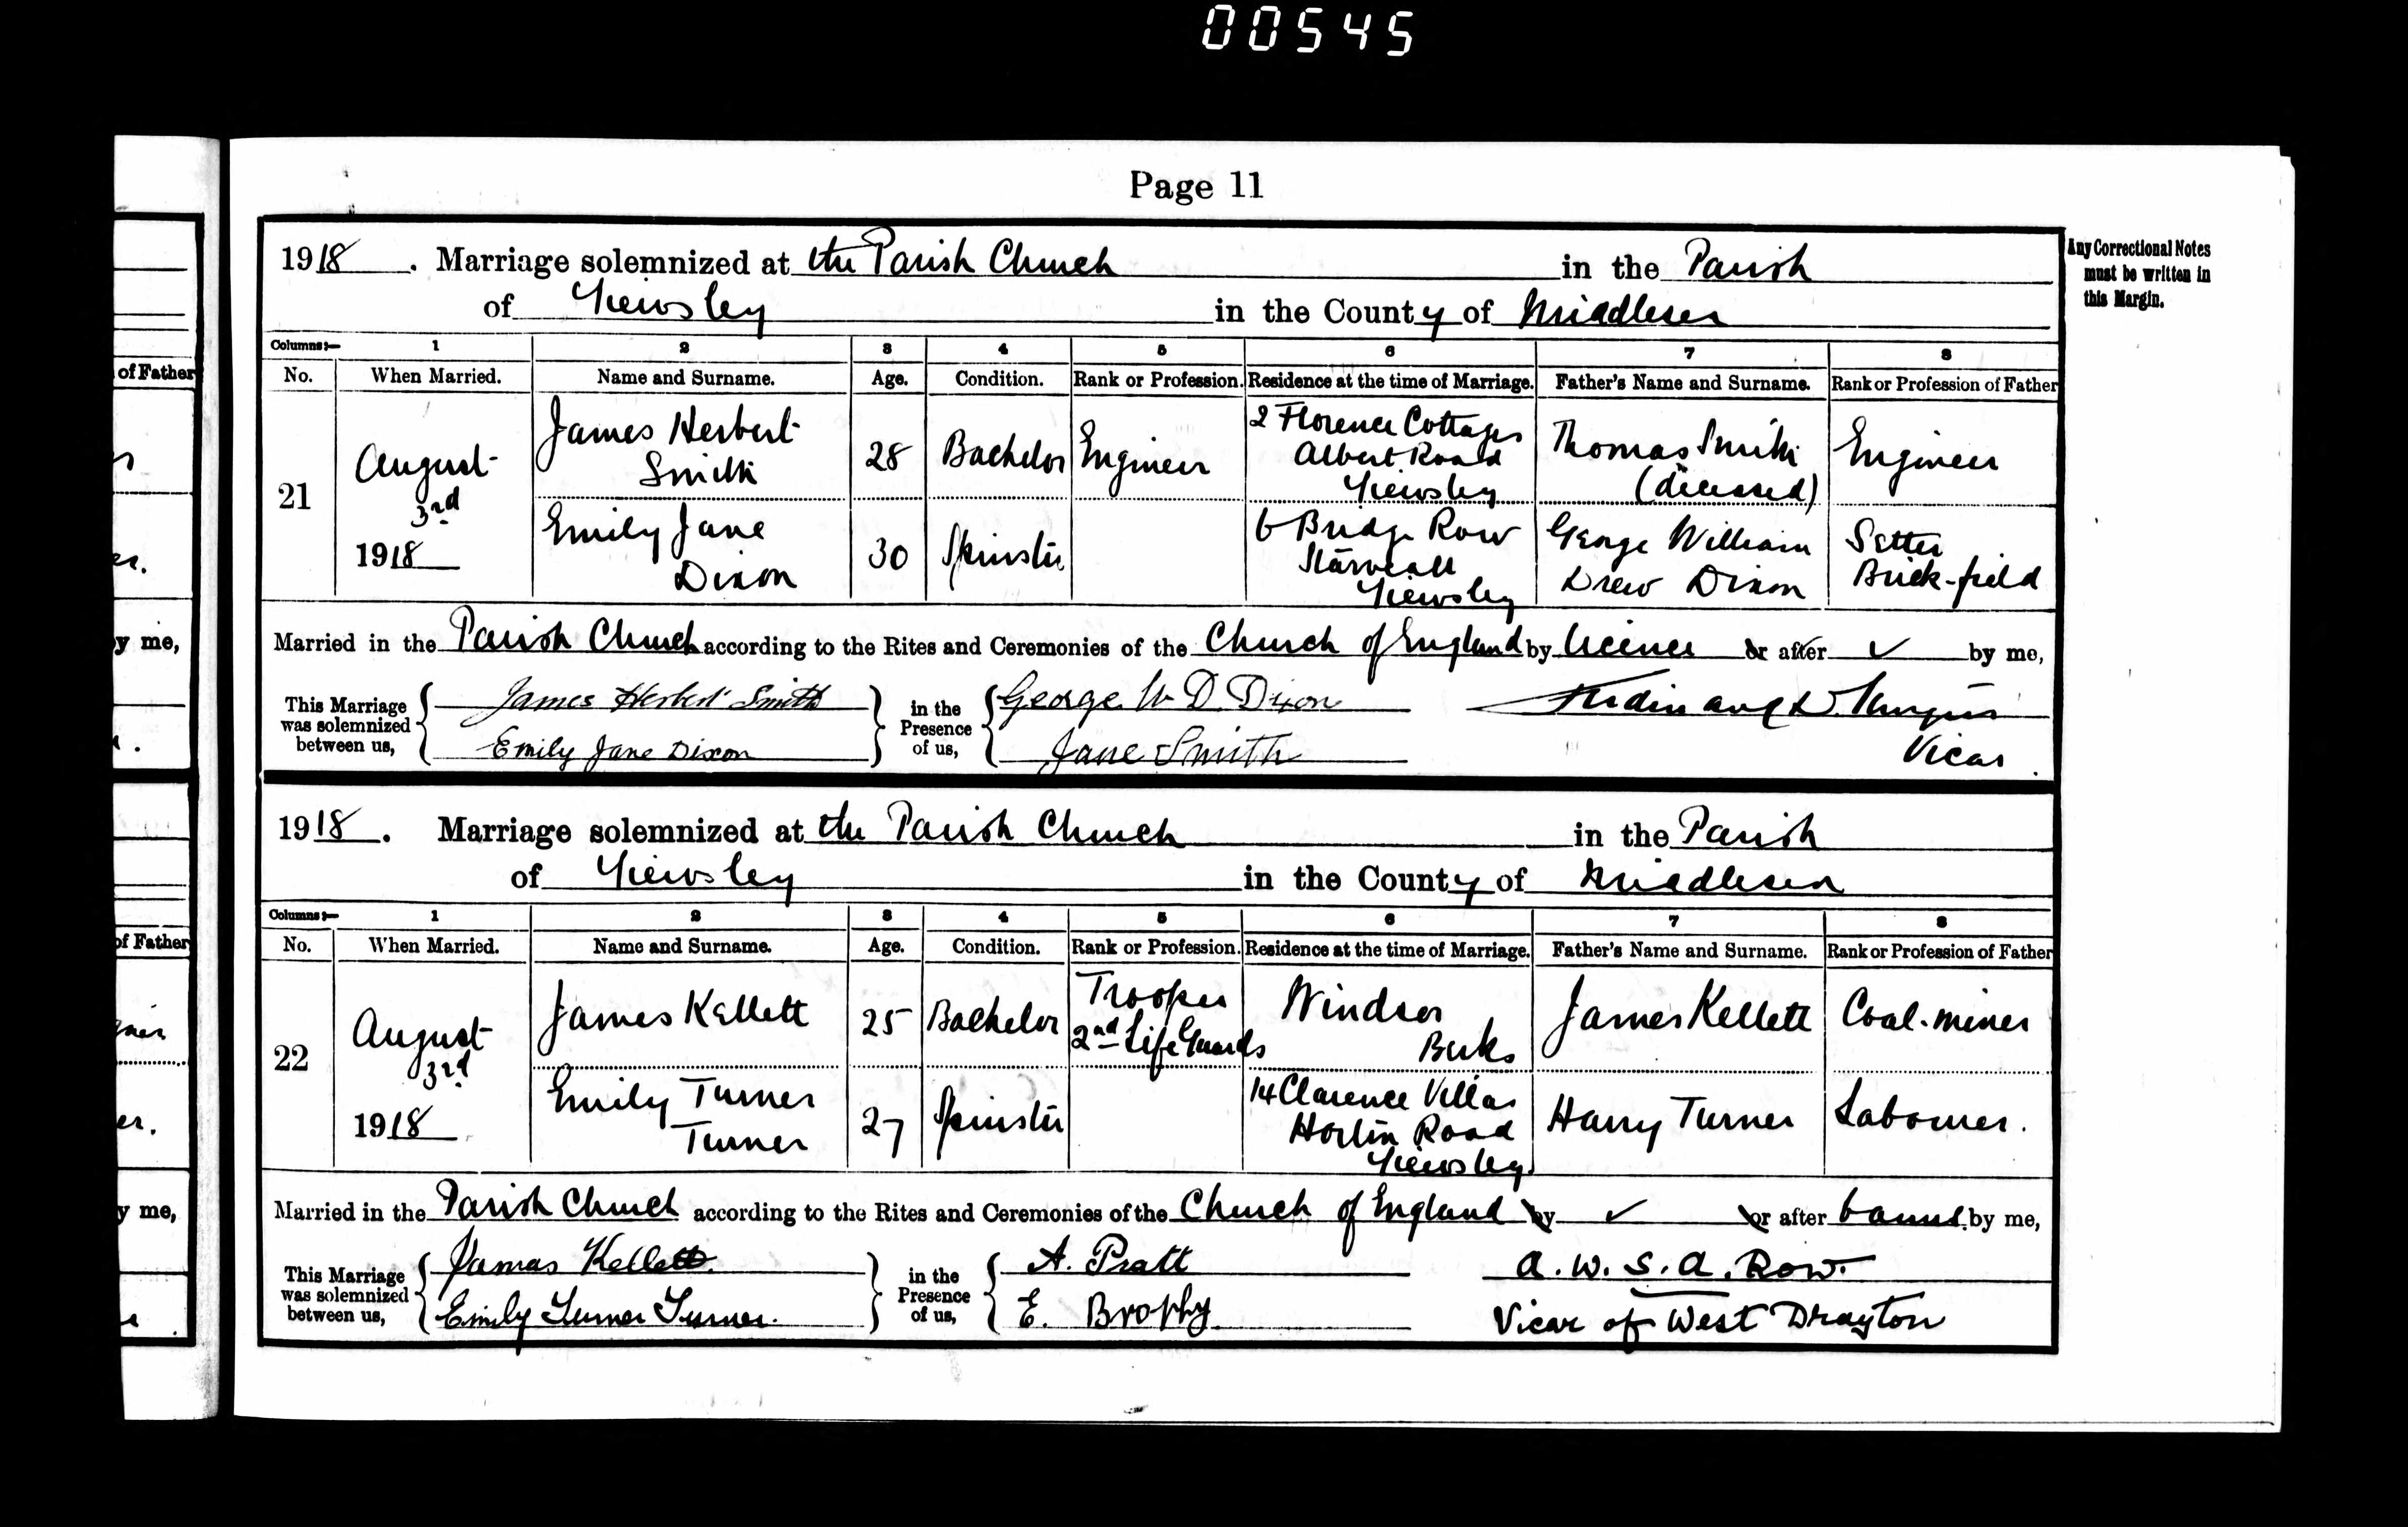 00545
Page 11
1918. Marriage solemnized at the Parish Church in the Parish
of Yiewsley in the County of Middlesex
Any Correctional Notes
must be written in
this Margin.
Columns:— 1 2 3 4 5 6 7 8
No. When Married. Name and Surname. Age. Condition. Rank or Profession. Residence at the time of Marriage. Father's Name and Surname. Rank or Profession of Father
21 August 3rd 1918
James Herbert Smith 28 Bachelor Engineer 2 Florence Cottages Albert Road Yiewsley Thomas Smith (deceased) Engineer
Emily Jane Dixon 30 Spinster 6 Bridge Row Starveall Yiewsley George William Drew Dixon Setter Brick-field
Married in the Parish Church according to the Rites and Ceremonies of the Church of England by licence or after ✓ by me,
This Marriage was solemnized between us, James Herbert Smith in the Presence of us, George W D. Dixon
Emily Jane Dixon Jane Smith
Vicar
1918. Marriage solemnized at the Parish Church in the Parish
of Yiewsley in the County of Middlesex
Columns:— 1 2 3 4 5 6 7 8
No. When Married. Name and Surname. Age. Condition. Rank or Profession. Residence at the time of Marriage. Father's Name and Surname. Rank or Profession of Father
22 August 3rd 1918
James Kellett 25 Bachelor Trooper 2nd Life Guards Windsor Berks James Kellett Coal-miner
Emily Turner Turner 27 Spinster 14 Clarence Villas Road Yiewsley Harry Turner Labourer.
Married in the Parish Church according to the Rites and Ceremonies of the Church of England by ✓ or after banns by me,
This Marriage was solemnized between us, James Kellett. in the Presence of us, A. Pratt A. W. S. A. Row.
Emily Turner Turner. E. Brophy. Vicar of West Drayton
of Father
er.
by me,
of Father
er.
y me,